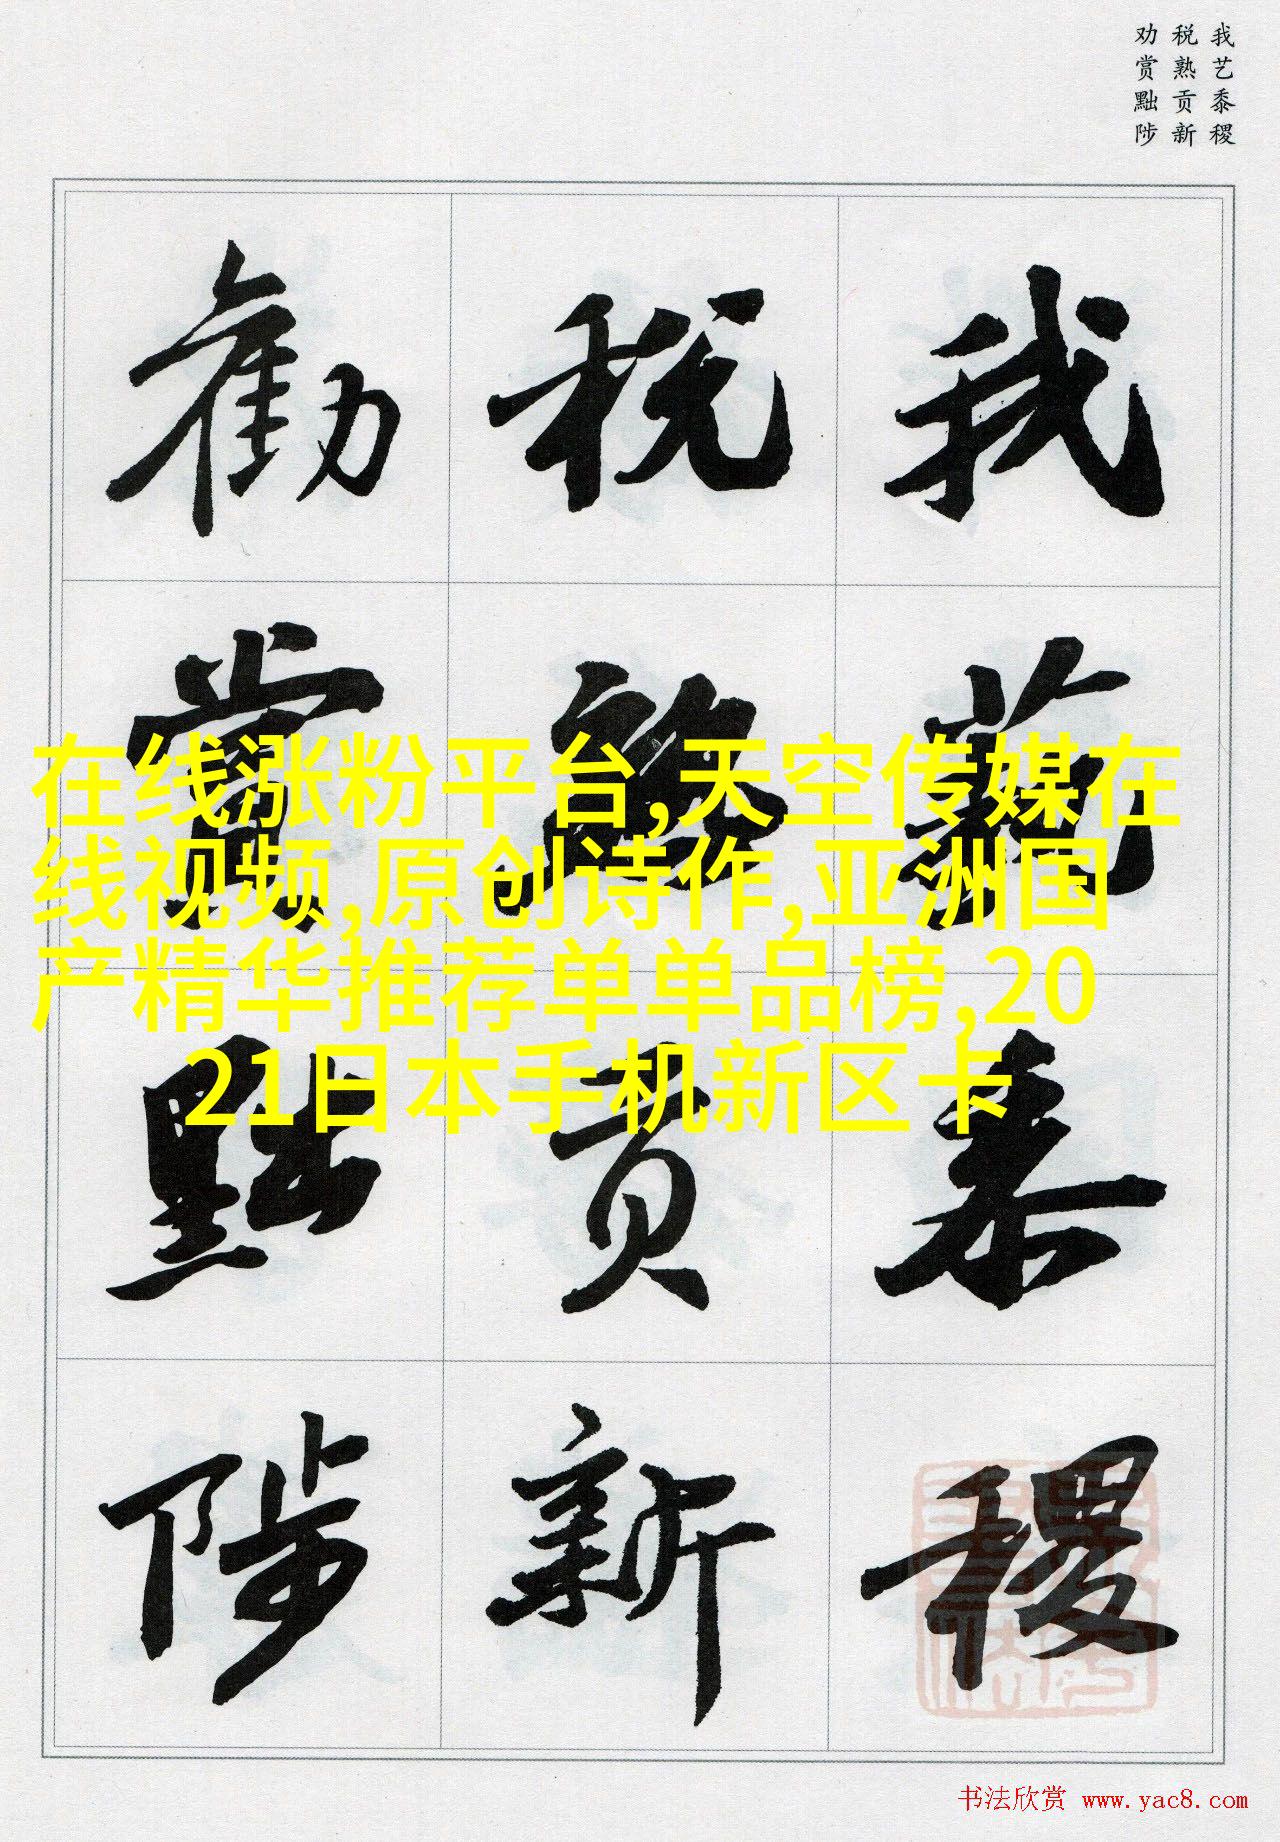 我艺黍稷
税熟贡新
劝赏黜陟
我蓺黍稷
税熟貢新
勸賞黜陟
在线涨粉平台,天空传媒在
线视频,原创诗作,亚洲国
产精华推荐单单品榜,20
21日本手机新区卡
书法欣赏 www.yac8.com